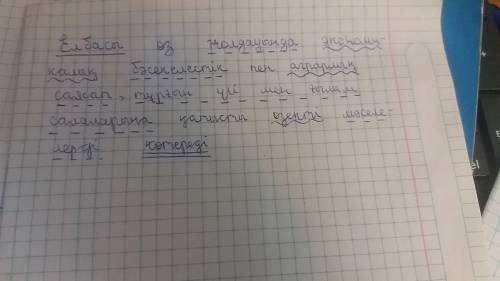 Елбасы өз жолдауында эконом-
икалық бәсекелестік пен аграрлық
саясат, тұрғын үй мен ғылым
салаларына қатысты өзекті мәселе-
лерді көтереді